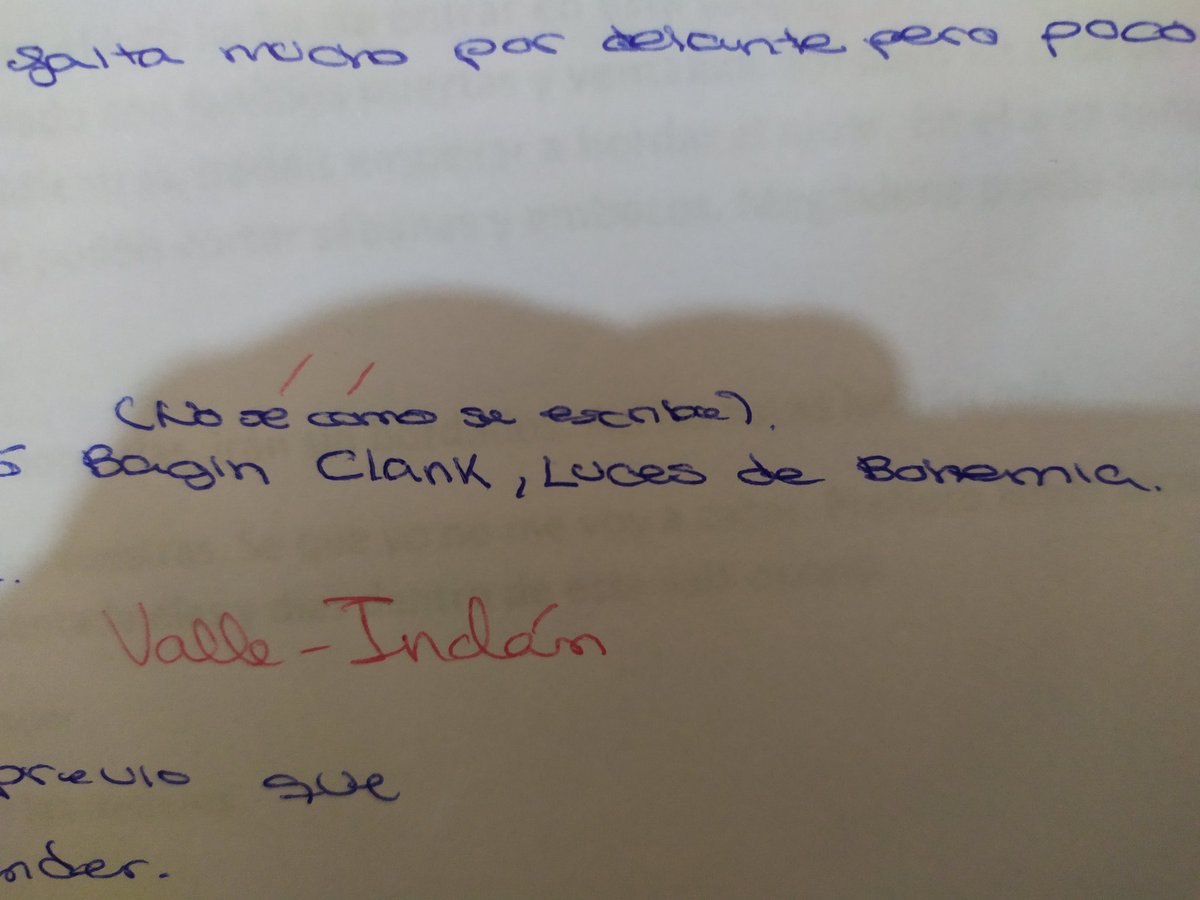 falta mucho por delante pero poco
(No sé cómo se escribe).
Bagin Clank, Luces de Bohemia.
Valle-Inclán
previo que
nder.